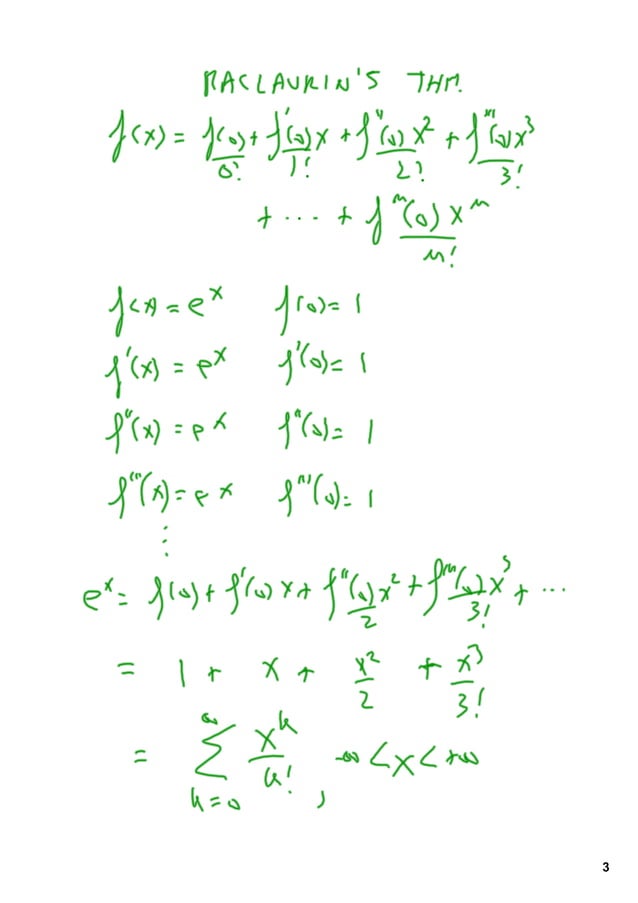 MACLAURIN'S THM.
f(x) = f(0)/0! + f'(0)x/1! + f''(0)x²/2! + f'''(0)x³/3!
+ ... + fⁿ(0)xⁿ/n!
f(x) = eˣ f(0) = 1
f'(x) = eˣ f'(0) = 1
f''(x) = eˣ f''(0) = 1
f'''(x) = eˣ f'''(0) = 1
⋮
eˣ = f(0) + f'(0)x + f''(0)x²/2 + f'''(0)x³/3! + ...
= 1 + x + x²/2 + x³/3!
= ∑_{k=0}^{∞} xᵏ/k! , -∞ < x < +∞
3